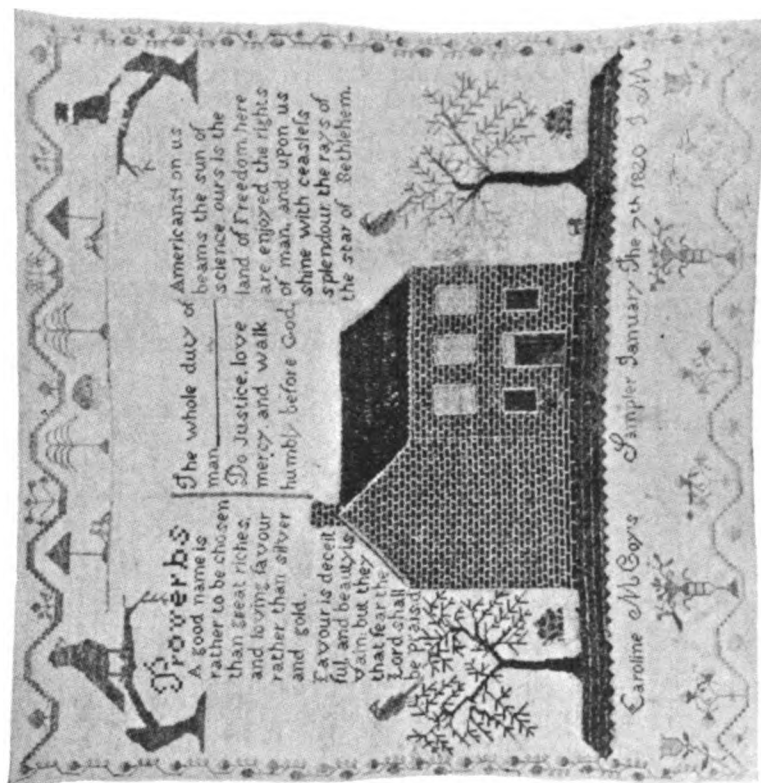 Proverbs
A good name is
rather to be chosen
than great riches,
and loving favour
rather than silver
and gold.
Favour is deceit
ful, and beauty is
vain: but they
that fear the
Lord shall
be praisd
The whole duty of
man
Do Justice, love
mercy and walk
humbly before God.
Americans! on us
beams the sun of
science ours is the
land of Freedom here
are enjoyed the rights
of man, and upon us
shine with ceasless
splendour the rays of
the star of Bethlehem.
Caroline McCoy's Sampler January The 7th 1820 J M